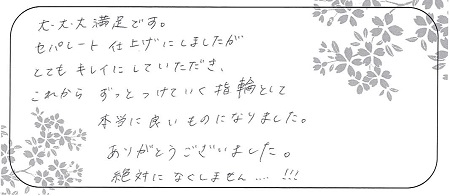 大・大・大満足です。
セパレート仕上げにしましたが
とてもキレイにしていただき、
これからずっとつけていく指輪として
本当に良いものになりました。
ありがとうございました。
絶対になくしません…. !!!